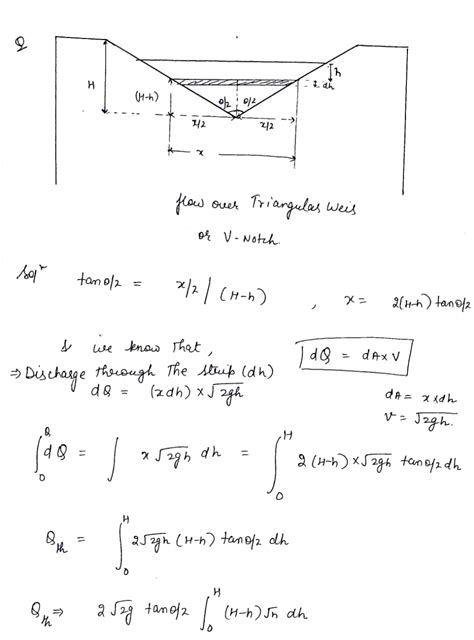 Q
h
dh
H
(H-h)
θ/2 θ/2
x/2 x/2
x
flow over Triangular weir
or V-Notch
Solⁿ tanθ/2 = x/2 / (H-h) , x = 2(H-h) tanθ/2
& we know that, dQ = dA×V
⇒ Discharge through The strip (dh)
dQ = (xdh) × √2gh dA = x×dh
V = √2gh.
∫₀^Q dQ = ∫ x √2gh dh = ∫₀^H 2 (H-h) × √2gh tanθ/2 dh
Q_th = ∫₀^H 2√2gh (H-h) tanθ/2 dh
Q_th ⇒ 2√2g tanθ/2 ∫₀^H (H-h) √h dh